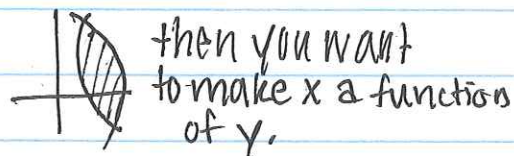 then you want
to make x a function
of y.